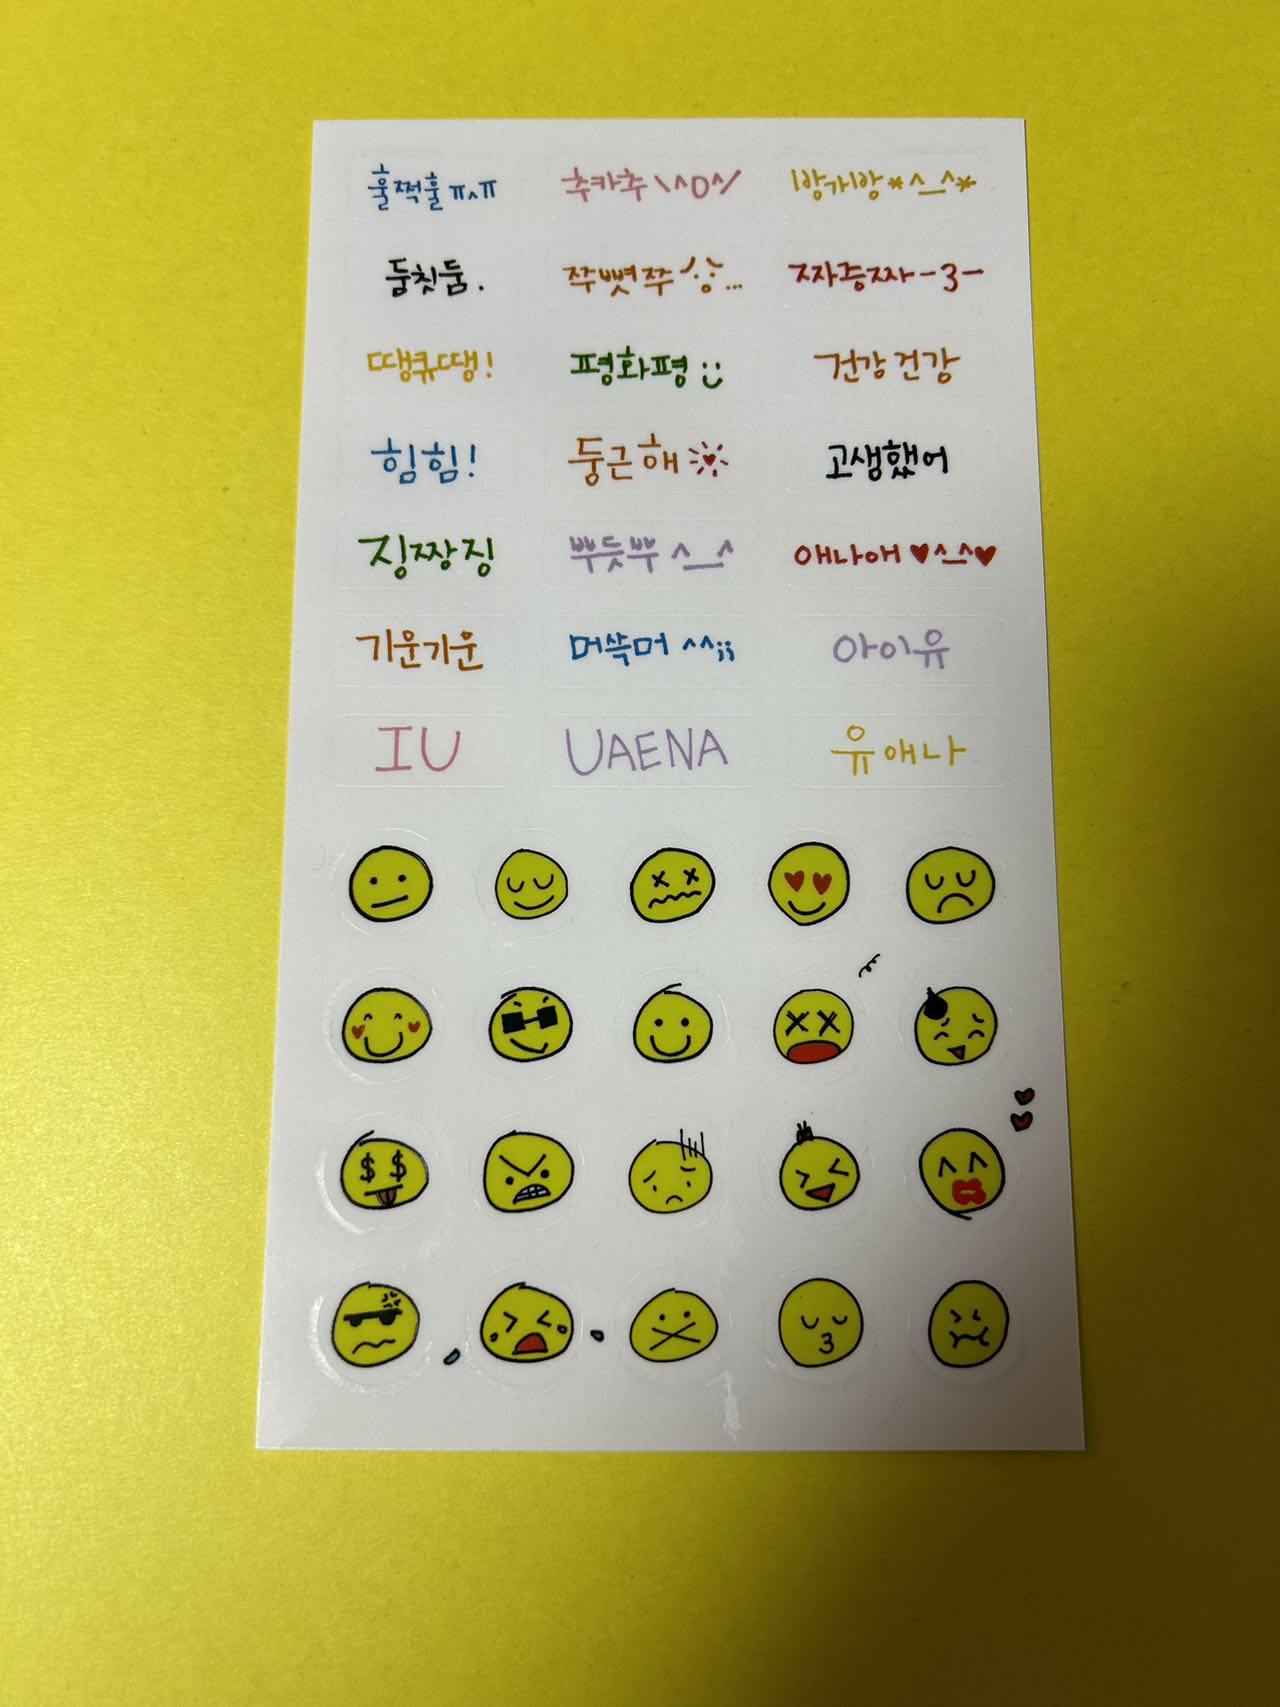 훌쩍훌 ㅠ^ㅠ 추카추 \^0^/ 방가방 *^_^*
둠칫둠. 쭈뼛쭈 ... 짜증짜 -3-
땡큐땡! 평화평 :) 건강건강
힘힘! 둥근해 고생했어
징짱징 뿌듯뿌 ^_^ 애나애 ♥^_^♥
기운기운 머쓱머 ^^;; 아이유
IU UAENA 유애나